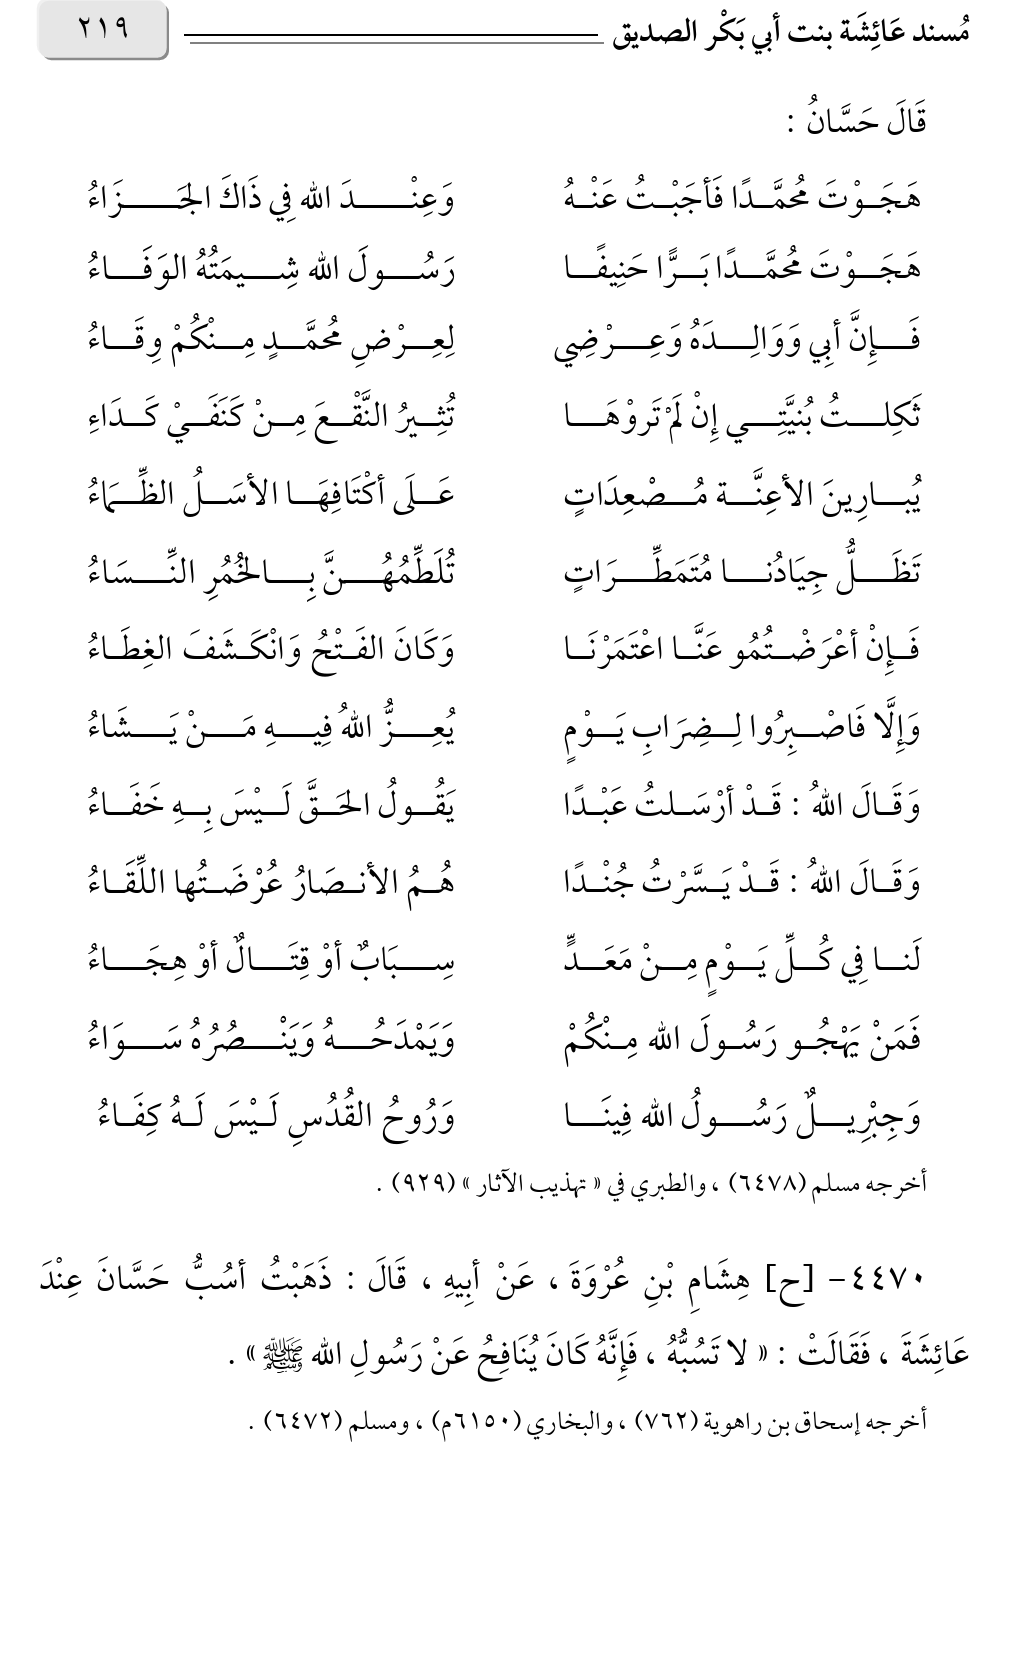 مُسند عَائِشَة بنت أبي بَكْر الصديق ٢١٩
قَالَ حَسَّانُ :
هَجَوْتَ مُحمَّدًا فَأجَبْتُ عَنْهُ وَعِنْدَ الله فِي ذَاكَ الجَزَاءُ
هَجَوْتَ مُحمَّدًا بَرًّا حَنِيفًا رَسُولَ الله شِيمَتُهُ الوَفَاءُ
فَإِنَّ أبِي وَوَالِدَهُ وَعِرْضِي لِعِرْضِ مُحمَّدٍ مِنْكُمْ وِقَاءُ
ثَكِلتُ بُنيَّتِي إِنْ لَمْ تَروْهَا تُثِيرُ النَّقْعَ مِنْ كَنَفَيْ كَدَاءِ
يُبارِينَ الأعِنَّة مُصْعِدَاتٍ عَلَى أكْتَافِهَا الأسَلُ الظِّمَاءُ
تَظَلُّ جِيَادُنا مُتَمَطِّرَاتٍ تُلَطِّمُهُنَّ بِالخُمُرِ النِّسَاءُ
فَإِنْ أعْرَضْتُمُو عَنَّا اعْتَمَرْنَا وَكَانَ الفَتْحُ وَانْكَشَفَ الغِطَاءُ
وَإِلَّا فَاصْبِرُوا لِضِرَابِ يَوْمٍ يُعِزُّ اللهُ فِيهِ مَنْ يَشَاءُ
وَقَالَ اللهُ : قَدْ أرْسَلتُ عَبْدًا يَقُولُ الحَقَّ لَيْسَ بِهِ خَفَاءُ
وَقَالَ اللهُ : قَدْ يَسَّرْتُ جُنْدًا هُمُ الأنصَارُ عُرْضَتُها اللِّقَاءُ
لَنا فِي كُلِّ يَوْمٍ مِنْ مَعَدٍّ سِبَابٌ أوْ قِتَالٌ أوْ هِجَاءُ
فَمَنْ يَهْجُو رَسُولَ الله مِنْكُمْ وَيَمْدَحُهُ وَيَنْصُرُهُ سَوَاءُ
وَجِبْرِيلٌ رَسُولُ الله فِينَا وَرُوحُ القُدُسِ لَيْسَ لَهُ كِفَاءُ
أخرجه مسلم (٦٤٧٨) ، والطبري في « تهذيب الآثار » (٩٢٩) .
٤٤٧٠- [ح] هِشَامِ بْنِ عُرْوَةَ ، عَنْ أبِيهِ ، قَالَ : ذَهَبْتُ أسُبُّ حَسَّانَ عِنْدَ
عَائِشَةَ ، فَقَالَتْ : « لا تَسُبُّهُ ، فَإِنَّهُ كَانَ يُنَافِحُ عَنْ رَسُولِ الله ﷺ » .
أخرجه إسحاق بن راهوية (٧٦٢) ، والبخاري (٦١٥٠م) ، ومسلم (٦٤٧٢) .